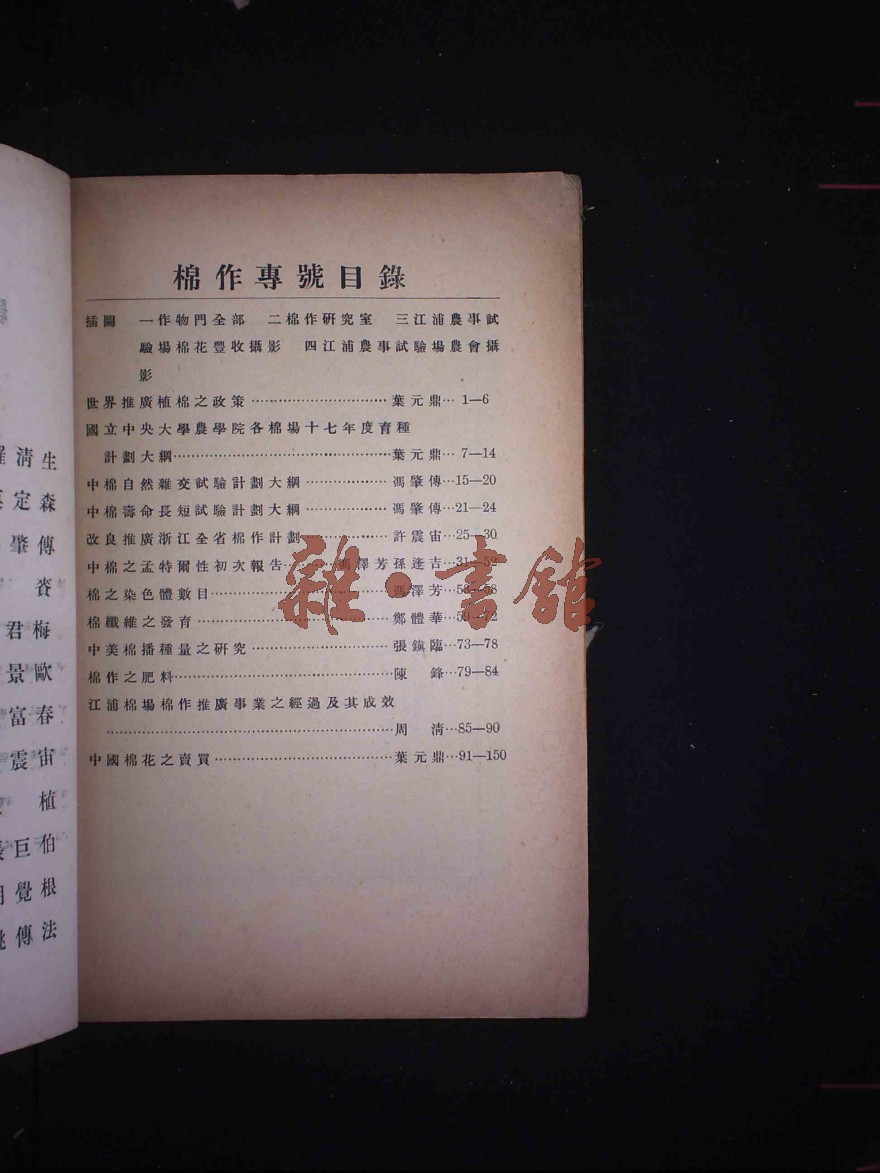 棉作專號目錄
插圖 一作物門全部 二棉作研究室 三江浦農事試
驗場棉花豐收攝影 四江浦農事試驗場農會攝
影
世界推廣植棉之政策……………………………葉元鼎…1—6
國立中央大學農學院各棉場十七年度育種
計劃大綱……………………………………………葉元鼎…7—14
中棉自然雜交試驗計劃大綱…………………馮肇傳…15—20
中棉壽命長短試驗計劃大綱…………………馮肇傳…21—24
改良推廣浙江全省棉作計劃…………………許震宙…25—30
中棉之孟特爾性初次報告…………馮澤芳孫逢吉…31—52
棉之染色體數目…………………………………馮澤芳…53—58
棉纖維之發育……………………………………鄭體華…59—72
中美棉播種量之研究……………………………張鎮臨…73—78
棉作之肥料………………………………………陳 鋒…79—84
江浦棉場棉作推廣事業之經過及其成效
………………………………………………………周 清…85—90
中國棉花之賣買…………………………………葉元鼎…91—150
雜·書館
清生
定森
肇傳
君梅
景歐
富春
震宙
植
巨伯
覺根
傳法